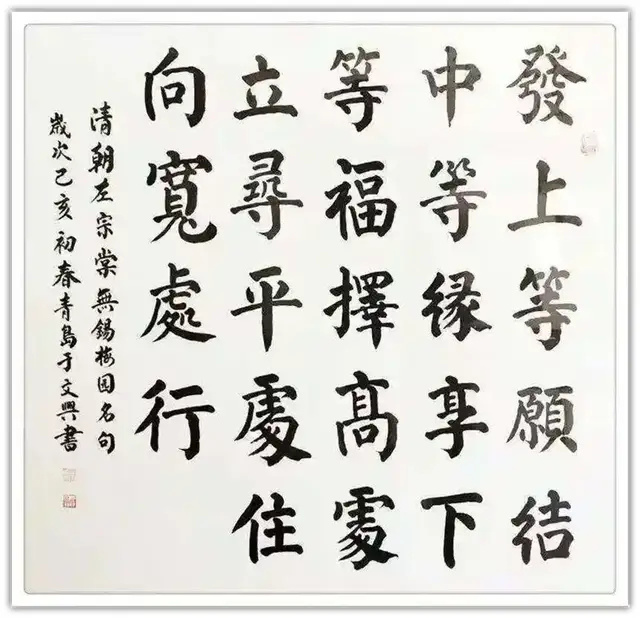 發上等願結
中等緣享下
等福擇高處
立尋平處住
向寬處行
清朝左宗棠無錫梅园名句
歲次己亥初春青島于文興書